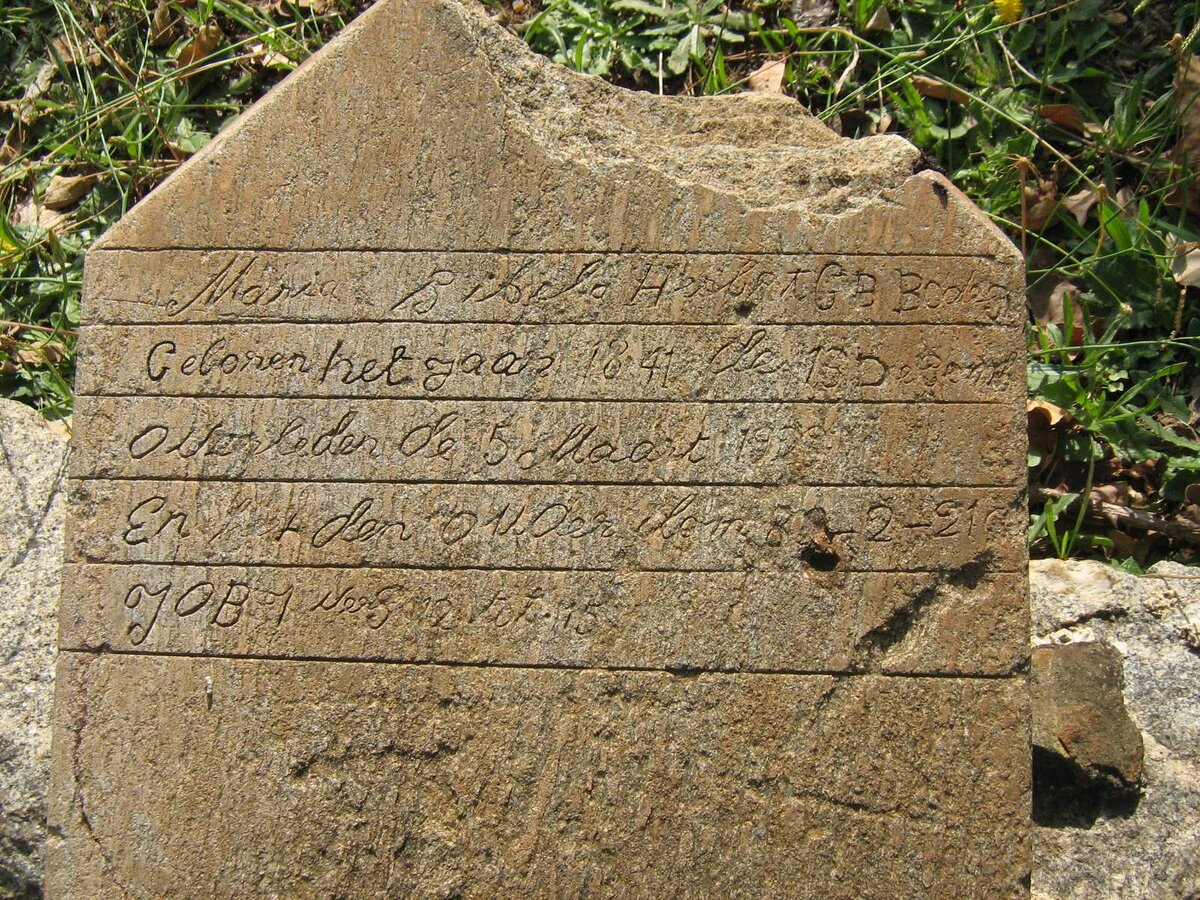 Maria Sibela Herbst GB Booky
Geboren het jaar 1841 de 15 Desem
Overleden de 5 Maart 192
En het den ouOer dem 8 -2-21
JOB 7 vers 12 tot 15